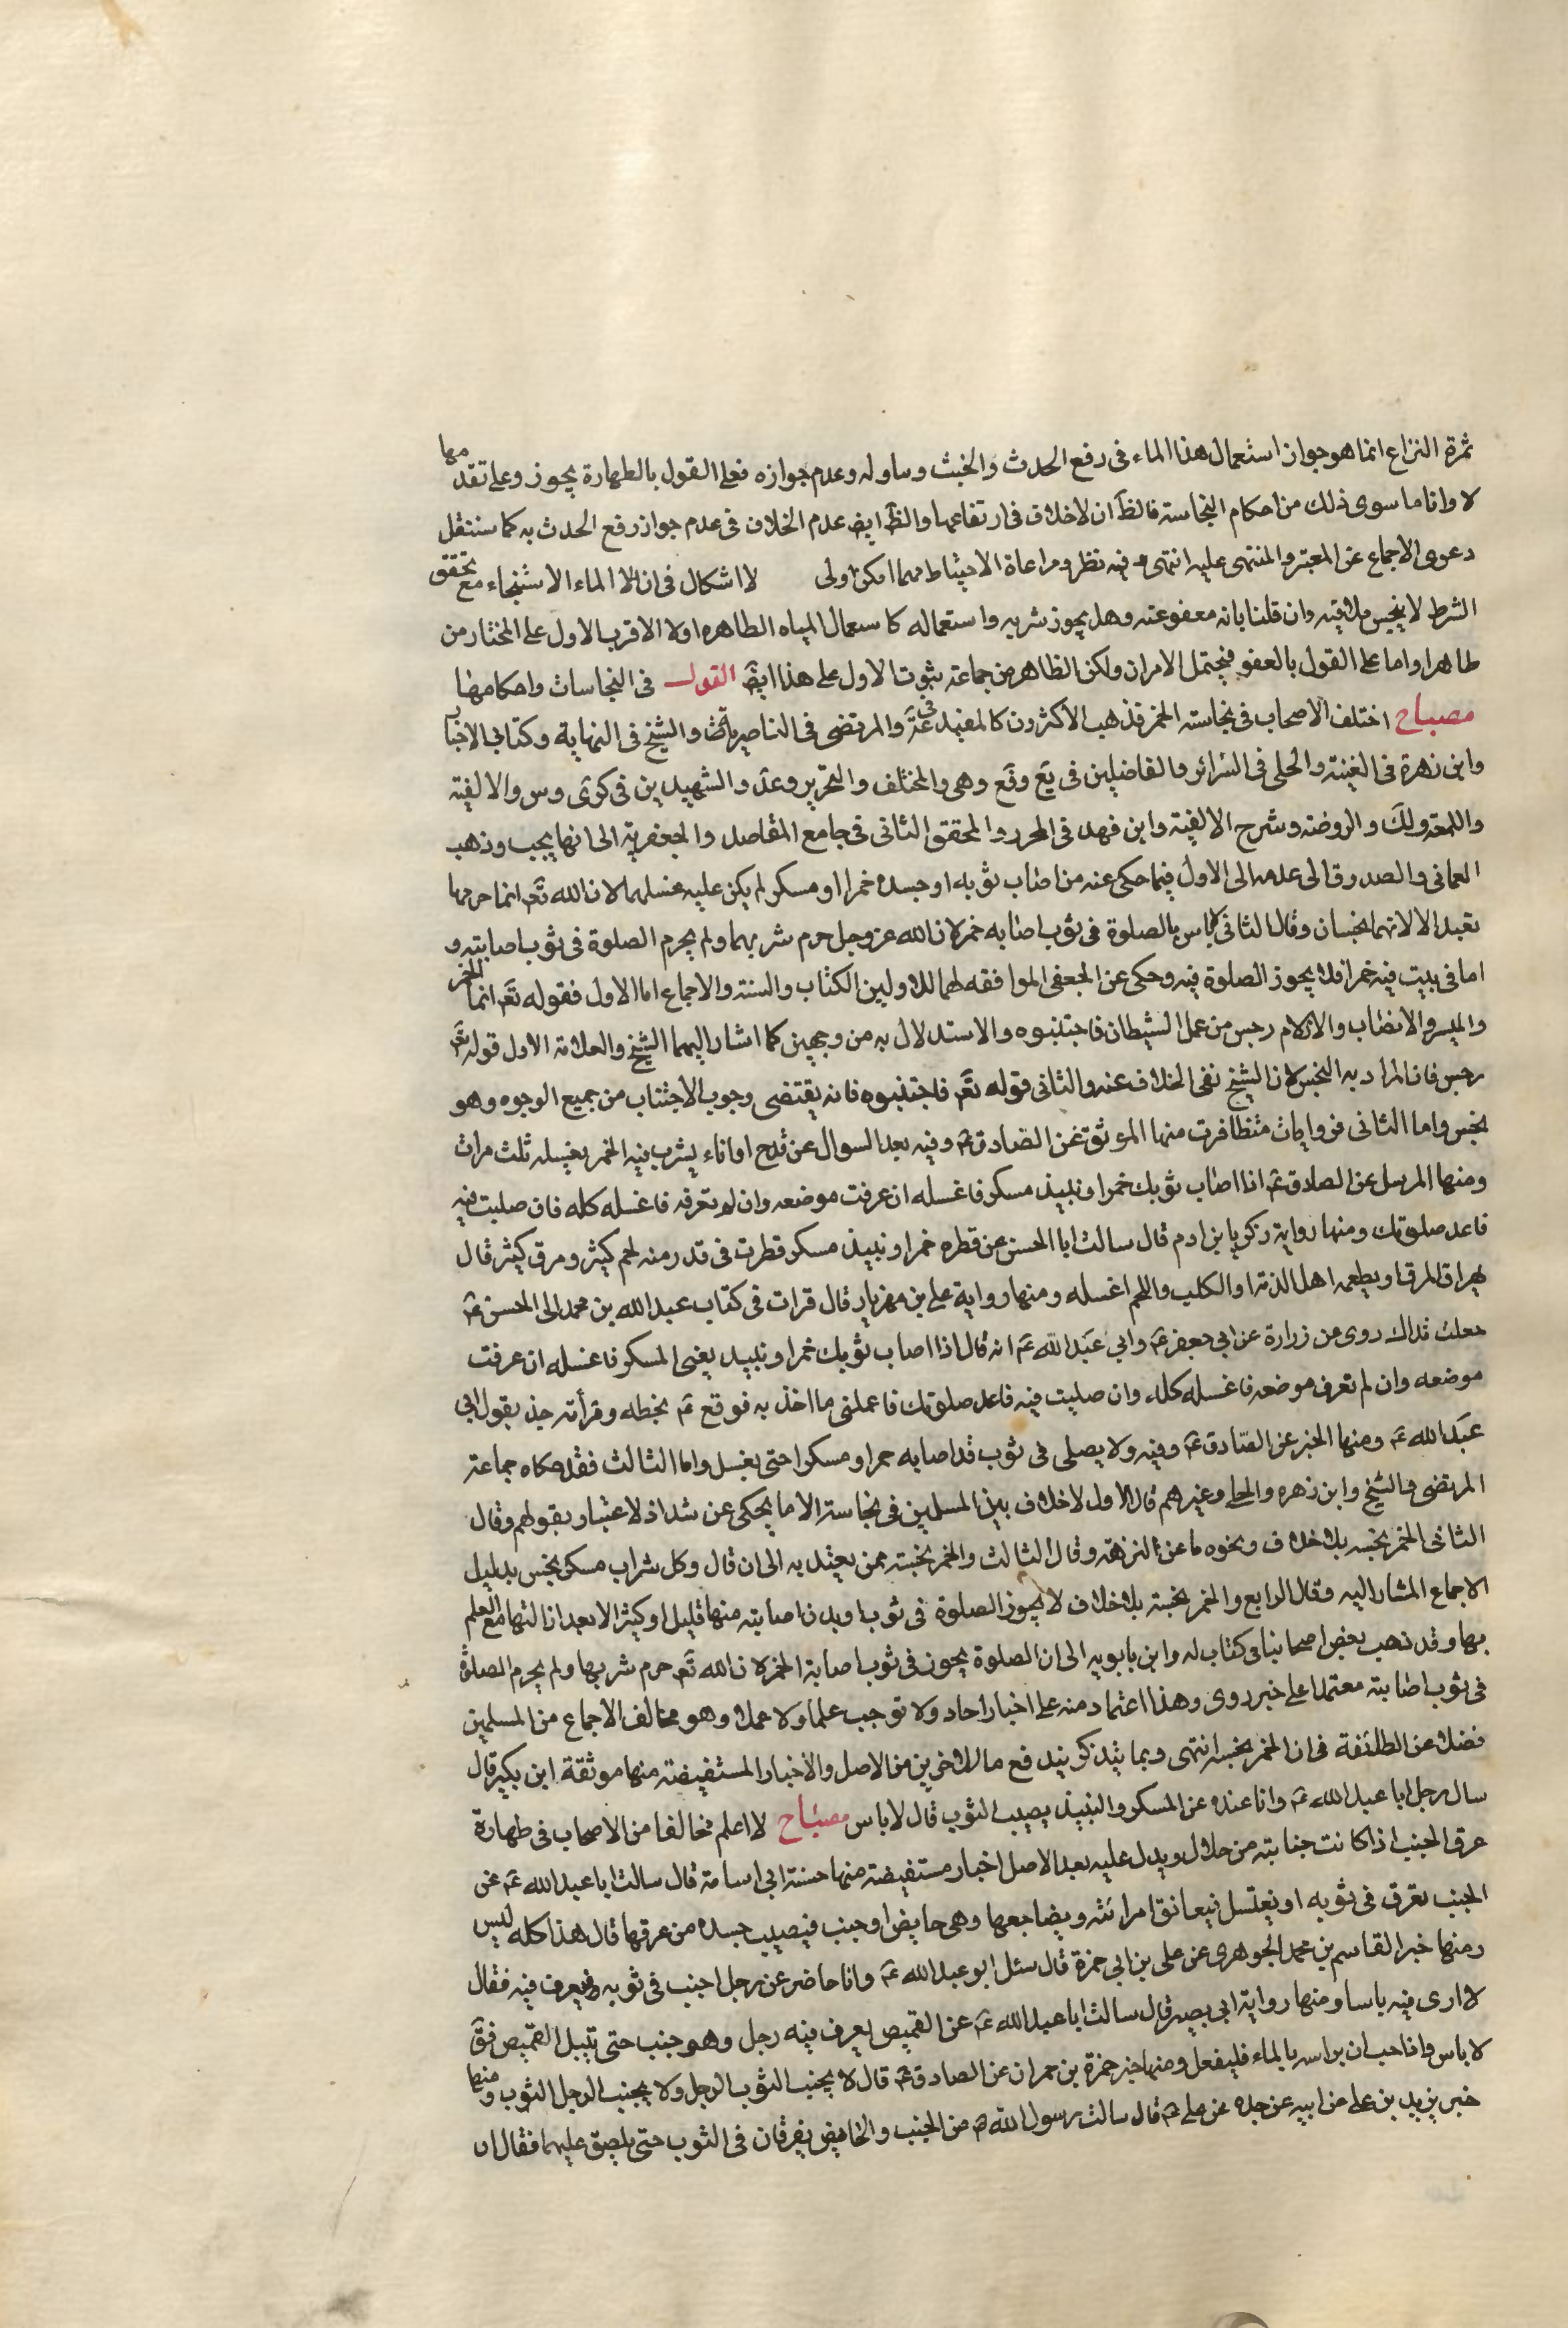 ثمرة النزاع انما هو جواز استعمال هذا الماء فى رفع الحدث والخبث وساوله وعدم جوازه فعلى القول بالطهارة يجوز وعلى تقد مها
لا واناما سوى ذلك من احكام النجاسته فالظ ان لاخلاف فى ارتفاعها والظ ايض عدم الخلاف فى عدم جواز رفع الحدث به كما سننقل
دعوى الاجماع عن المعتبر والمنتهى عليه انتهى وفيه نظر ومراعاة الاحتياط مهما امكن اولى لا اشكال فى ان الا الماء الاستنجاء مع تحقق
الشرط لا ينجس ملاقيه وان قلنا بانه معفو عنه وهل يجوز شربه واستعماله كاستعمال المياه الطاهره او لا الاقرب الاول على المختار من
طاهرا واما على القول بالعفو فيحتمل الامران ولكن الظاهر من جماعته ثبوت الاول على هذا ايض القول فى النجاسات واحكامها
مصباح اختلف الاصحاب فى نجاسته الخمر فذهب الاكثرون كالمفيد فى عة والمرتضى فى الناصريات والشيخ فى النهاية وكتابى الاخبار
وابن زهرة فى الغنية والحلى فى السرائر والفاضلين فى يع وفع وهى والمختلف والتحرير وعد والشهيدين فى كرى وس والالفيته
واللمعه ولك والروضه وشرح الالفيته وابن فهد فى المحرر والمحقق الثانى فى جامع المقاصد والجعفريته الى انها يجب وذهب
العمانى والصدوق الى عدمه الى الاول فيما حكى عنه من اصاب ثوبه او جسده خمرا او مسكر لم يكن عليه غسلهما لان الله تع انما حرمها
تعبدا لا لانهما نجسان وقال الثانى لاباس بالصلوة فى ثوب اصابه خمر لان الله عز وجل حرم شربهما ولم يحرم الصلوة فى ثوب اصابته و
اما فى بيت فيه خمر فلا يجوز الصلوة فيه وحكى عن الجعفى الموافقه لهما للاولين الكتاب والسنته والاجماع اما الاول فقوله تع انما الخمر
والميسر والانصاب والازلام رجس من عمل الشيطان فاجتنبوه والاستدلال به من وجهين كما اشار اليهما الشيخ والعلامه الاول قوله تع
رجس فان المراد به النجس لان الشيخ نفى الخلاف عنه والثانى قوله تع فاجتنبوه فانه يقتضى وجوب الاجتناب من جميع الوجوه وهو
نجس واما الثانى فروايات متظافرت منها الموثق عن الصادق ع وفيه بعد السوال عن قدح او اناء يشرب فيه الخمر يغسله ثلث مرات
ومنها المرسل عن الصادق ع اذا اصاب ثوبك خمر او نبيذ مسكر فاغسله ان عرفت موضعه وان لم تعرفه فاغسله كله فان صليت فيه
فاعد صلوتك ومنها رواية زكريا بن ادم قال سالت ابا الحسن عن قطره خمر او نبيذ مسكر قطرت فى قدر منه لحم كثير ومرق كثير قال
يهراق المرق او يطعمه اهل الذمة او الكلب واللحم اغسله ومنها رواية على بن مهزيار قال قرات فى كتاب عبد الله بن محمد الى الحسن ع
جعلت فداك روى من زرارة عن ابى جعفر ع وابى عبد الله ع انه قال اذا اصاب ثوبك خمر او نبيد يعنى المسكر فاغسله ان عرفت
موضعه وان لم تعرف موضعه فاغسله كله وان صليت فيه فاعد صلوتك فاعملنى ما اخذ به فوقع ع بخطه وقرأته خذ بقول ابى
عبد الله ع ومنها الخبر عن الصادق ع وفيه ولا يصلى فى ثوب قد اصابه خمر او مسكر احتى يغسل واما الثالث فقد حكاه جماعته
المرتضى والشيخ وابن زهره والحلى وغيرهم قال الاول لاخلاف بين المسلمين فى نجاسته الا ما يحكى عن شداذ لا عتبار بقولهم وقال
الثانى الخمر نجسه بلا خلاف ونحوه ما عن النزهة وقال الثالث والخمر نجسته ممن يعتد به الى ان قال وكل شراب مسكر نجس بدليل
الاجماع المشار اليه وقال الرابع والخمر نجسته بلا خلاف لا يجوز الصلوة فى ثوب او بدن اصابته منها قليل او كثير الا بعد ازالتها مع العلم
بها وقد ذهب بعض اصحابنا فى كتاب له وابن بابويه الى ان الصلوة يجوز فى ثوب اصابة الخمر لان الله تع حرم شربها ولم يحرم الصلاة
فى ثوب اصابته معتمدا على خبر روى وهذا اعتماد منه على اخبار احاد ولا توجب علما ولا عملا وهو مخالف الاجماع من المسلمين
فضلا عن الطائفة فى ان الخمر نجسه انتهى وبما يندفع ما للاخرين من الاصل والاخبار المستفيضته منها موثقة ابن بكير قال
سال رجل ابا عبد الله ع وانا عنده عن المسكر والنبيذ يصيب الثوب قال لا باس مصباح لا اعلم مخالفا من الاصحاب فى طهارة
عرق الجنب اذا كانت جنابته من حلال ويدل عليه بعد الاصل اخبار مستفيضته منها حسنته ابى اسامة قال سالت ابا عبد الله ع عن
الجنب يعرق فى ثوبه او يغتسل فيعانق امراته ويضاجعها وهى حايض او جنب فيصيب جسده من عرقها قال هذا كله ليس
ومنها خبر القاسم بن محمد الجوهرى عن على بن ابى حمزة قال سئل ابو عبد الله ع وانا حاضر عن رجل اجنب فى ثوبه فيعرف فيه فقال
لا ارى فيه باسا ومنها رواية ابى بصير قال سالت ابا عبد الله ع عن القميص يعرف فيه رجل وهو جنب حتى تبتل القميص فق
لا باس وان احب ان يراسه بالماء فليفعل ومنها خبر حمزة بن حمران عن الصادق ع قال لا يجنب الثوب الرجل ولا يجنب الرجل الثوب ومنها
خبر يزيد بن على عن ابيه عن جده عن على ع قال سالت رسول الله ص عن الجنب والحايض يعرقان فى الثوب حتى يلصق عليهما فقال ان